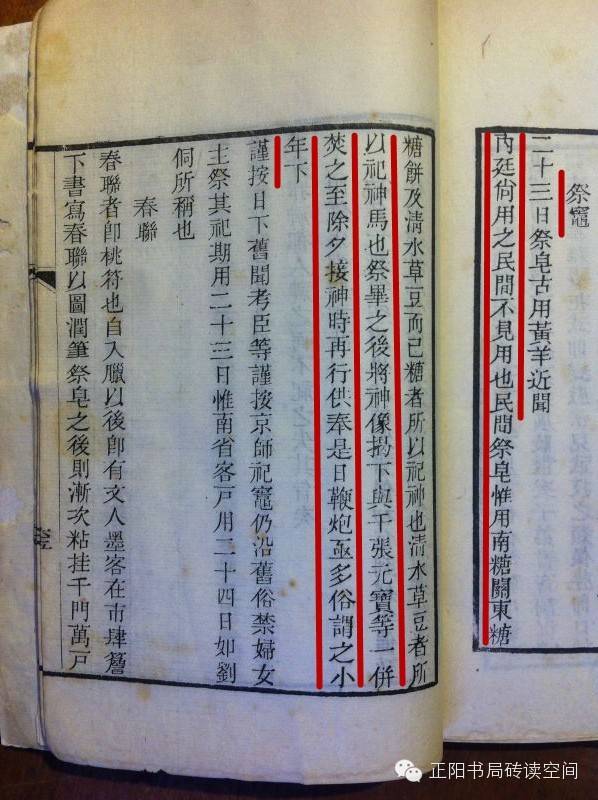 祭竈
二十三日祭皂古用黃羊近聞
內廷尙用之民間不見用也民間祭皂惟用南糖關東糖
糖餅及清水草豆而已糖者所以祀神也清水草豆者所
以祀神馬也祭畢之後將神像揭下與千張元寶等一併
焚之至除夕接神時再行供奉是日鞭炮亟多俗謂之小
年下
謹按日下舊聞考臣等謹按京師祀竈仍沿舊俗禁婦女
主祭其祀期用二十三日惟南省客戶用二十四日如劉
侗所稱也
春聯
春聯者卽桃符也自入臘以後卽有文人墨客在市肆簷
下書寫春聯以圖潤筆祭皂之後則漸次粘挂千門萬戶
正阳书局砖读空间